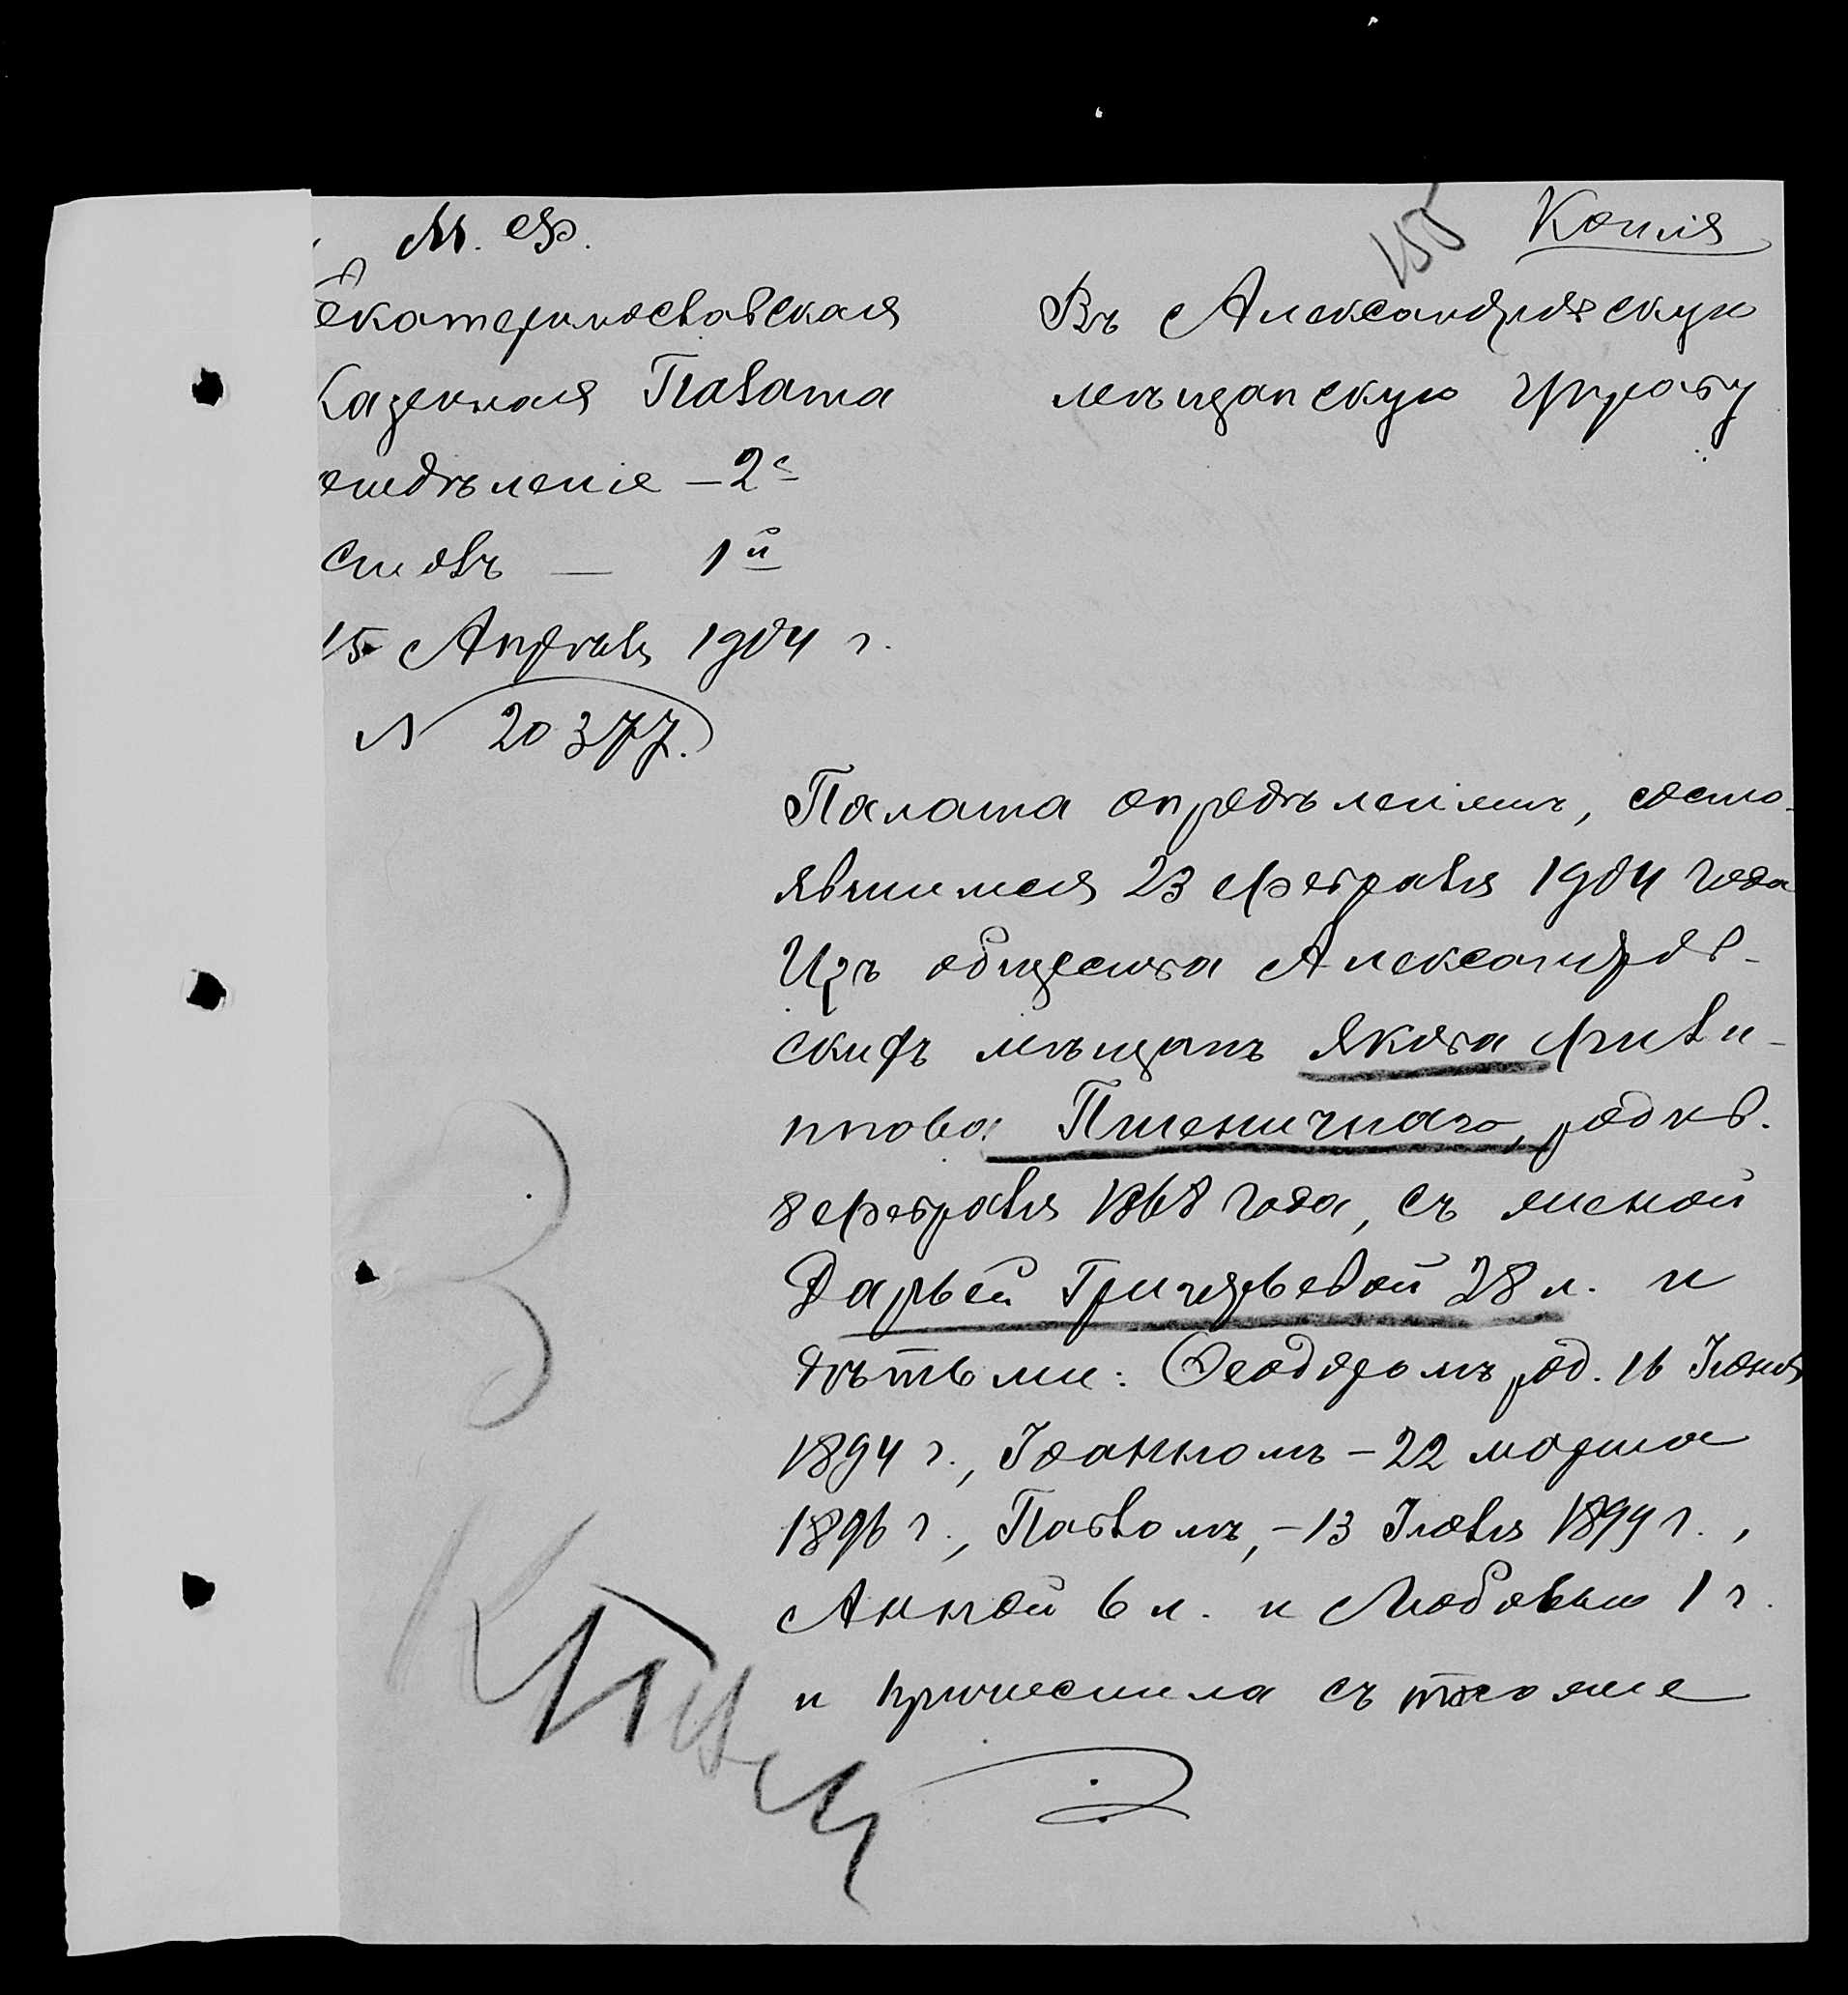 М. Ф.
155
Копія
Екатеринославская
Казенная Палата
отдѣленіе – 2е
столъ — 1й
15 Апрѣля 1904 г.
№ 20377.
Въ Александровскую
мѣщанскую Управу
Палата опредѣленіемъ, состо-
явшимся 23 февраля 1904 года
Изъ общества Александров-
скихъ мѣщанъ Якова Фили-
ппова Пшеничнаго, родив.
8 февраля 1868 года, съ женой
Дарьей Григорьевой 28 л. и
дѣтьми: Ѳеодоромъ род. 16 Іюня
1894 г., Іоанномъ – 22 марта
1896 г., Павломъ, – 13 Іюля 1899 г.,
Анной 6 л. и Любовью 1 г.
и причислила съ того же